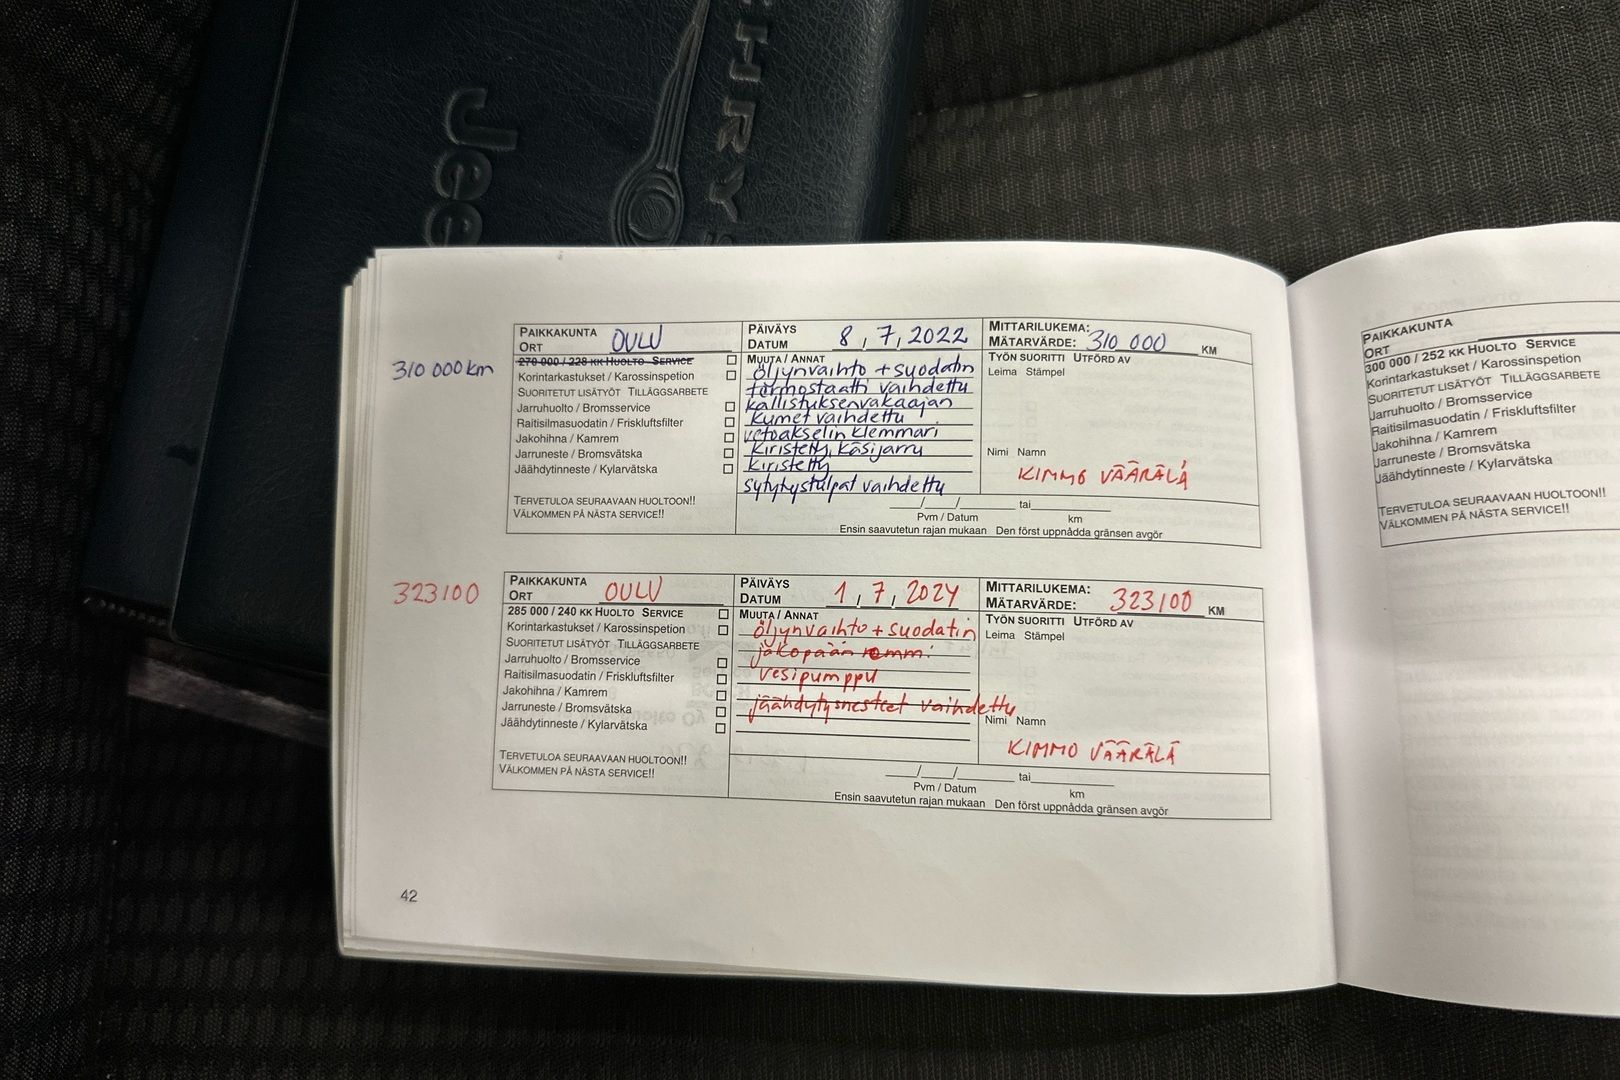 CHRYS
Jee
310 000 km
PAIKKAKUNTA
ORT OULU
270 000 / 228 KK HUOLTO SERVICE
Korintarkastukset / Karossinspetion
SUORITETUT LISÄTYÖT TILLÄGGSARBETE
Jarruhuolto / Bromsservice
Raitisilmasuodatin / Friskluftsfilter
Jakohihna / Kamrem
Jarruneste / Bromsvätska
Jäähdytinneste / Kylarvätska
TERVETULOA SEURAAVAAN HUOLTOON!!
VÄLKOMMEN PÅ NÄSTA SERVICE!!
PÄIVÄYS
DATUM 8, 7, 2022
MUUTA / ANNAT
öljynvaihto + suodatin
termostaatti vaihdettu
kallistuksenvakaajan
kumet vaihdettu
vetoakselin klemmari
kiristetty, käsijarru
kiristetty
sytytystulpat vaihdettu
MITTARILUKEMA:
MÄTARVÄRDE: 310 000 KM
TYÖN SUORITTI UTFÖRD AV
Leima Stämpel
Nimi Namn
KIMMO VÄÄRÄLÄ
__/__/____ tai________
Pvm / Datum km
Ensin saavutetun rajan mukaan Den först uppnådda gränsen avgör
323100
PAIKKAKUNTA
ORT OULU
285 000 / 240 KK HUOLTO SERVICE
Korintarkastukset / Karossinspetion
SUORITETUT LISÄTYÖT TILLÄGGSARBETE
Jarruhuolto / Bromsservice
Raitisilmasuodatin / Friskluftsfilter
Jakohihna / Kamrem
Jarruneste / Bromsvätska
Jäähdytinneste / Kylarvätska
TERVETULOA SEURAAVAAN HUOLTOON!!
VÄLKOMMEN PÅ NÄSTA SERVICE!!
PÄIVÄYS
DATUM 1, 7, 2024
MUUTA / ANNAT
öljynvaihto + suodatin
jakopään remmi
vesipumppu
jäähdytysnesteet vaihdettu
MITTARILUKEMA:
MÄTARVÄRDE: 323100 KM
TYÖN SUORITTI UTFÖRD AV
Leima Stämpel
Nimi Namn
KIMMO VÄÄRÄLÄ
__/__/____ tai________
Pvm / Datum km
Ensin saavutetun rajan mukaan Den först uppnådda gränsen avgör
42
PAIKKAKUNTA
ORT
300 000 / 252 KK HUOLTO SERVICE
Korintarkastukset / Karossinspetion
SUORITETUT LISÄTYÖT TILLÄGGSARBETE
Jarruhuolto / Bromsservice
Raitisilmasuodatin / Friskluftsfilter
Jakohihna / Kamrem
Jarruneste / Bromsvätska
Jäähdytinneste / Kylarvätska
TERVETULOA SEURAAVAAN HUOLTOON!!
VÄLKOMMEN PÅ NÄSTA SERVICE!!